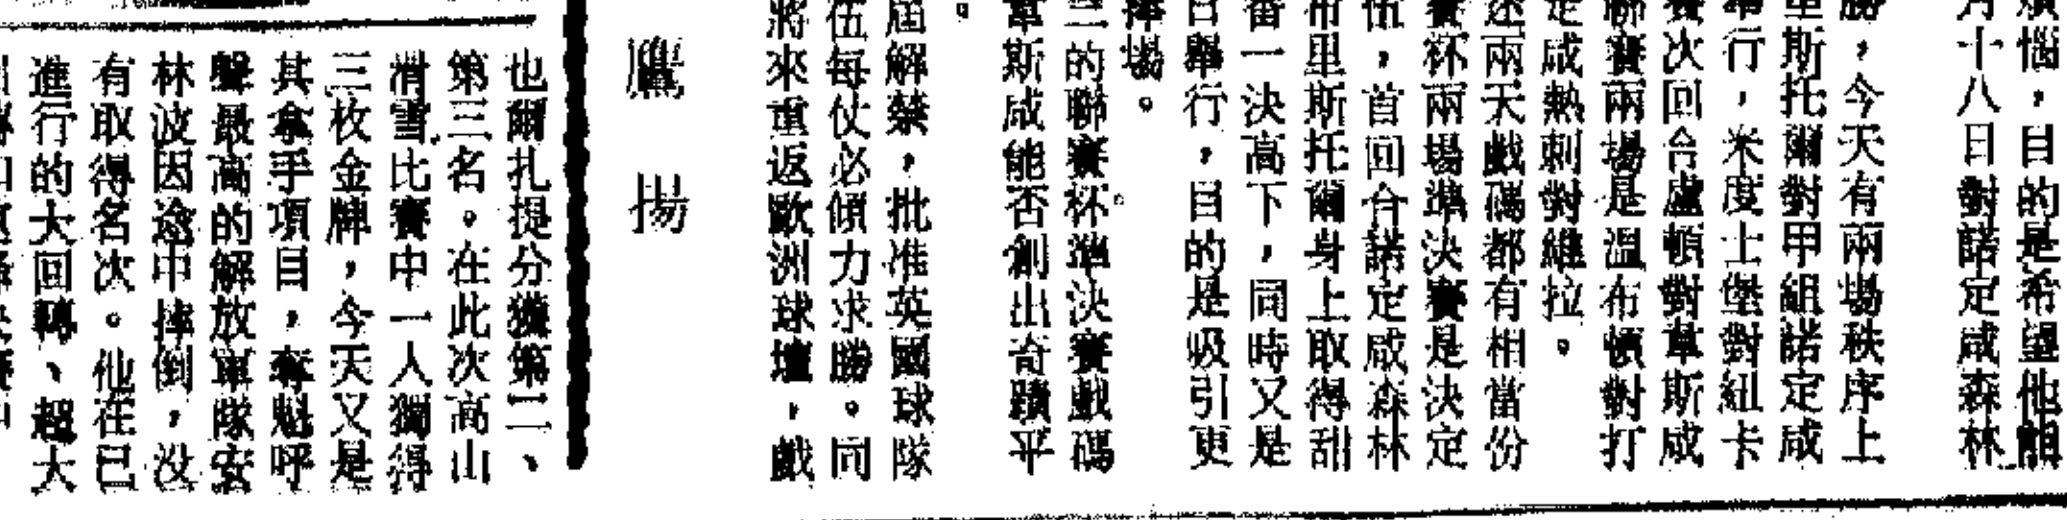 煩惱，目的是希望他能
月十八日對諾定咸森林
勝，今天有兩場秩序上
里斯托爾對甲組諾定咸
行，米度士堡對紐卡
賽次回合盧頓對韋斯咸
聯賽兩場是溫布頓對打
定咸熱刺對維拉。
述兩天戲碼都有相當份
賽杯兩場準決賽是決定
伍，首回合諾定咸森林
布里斯托爾身上取得甜
番一決高下，同時又是
日舉行，目的是吸引更
捧場。
三的聯賽杯準決賽戲碼
韋斯咸能否創出奇蹟平
。
屆解禁，批准英國球隊
伍每仗必傾力求勝。同
將來重返歐洲球壇，戲
鷹揚
也爾扎提分獲第二、
第三名。在此次高山
滑雪比賽中一人獨得
三枚金牌，今天又是
其拿手項目，奪魁呼
聲最高的解放軍隊安
林波因途中摔倒，没
有取得名次。他在已
進行的大回轉、超大